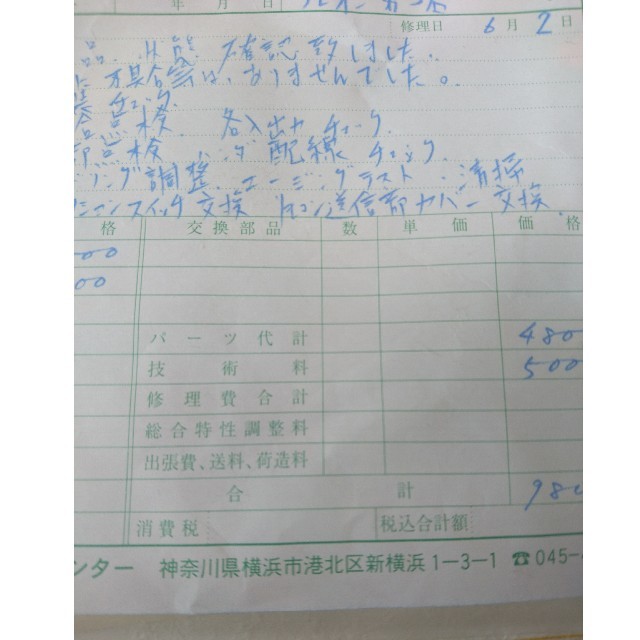 年 月 日
修理日 6月2日
確認致しました.
不具合等は、ありませんでした。
チェック
点検 各入出力チェック
点検 ハンダ 配線チェック
調整. エージングテスト. 清掃
スイッチ交換 リモコン送信部カバー交換
格 交換部品 数 単価 価格
00
00
パーツ代計 480
技術料 500
修理費合計
総合特性調整料
出張費、送料、荷造料
合計 980
消費税 税込合計額
ンター 神奈川県横浜市港北区新横浜1−3−1 ☎045-